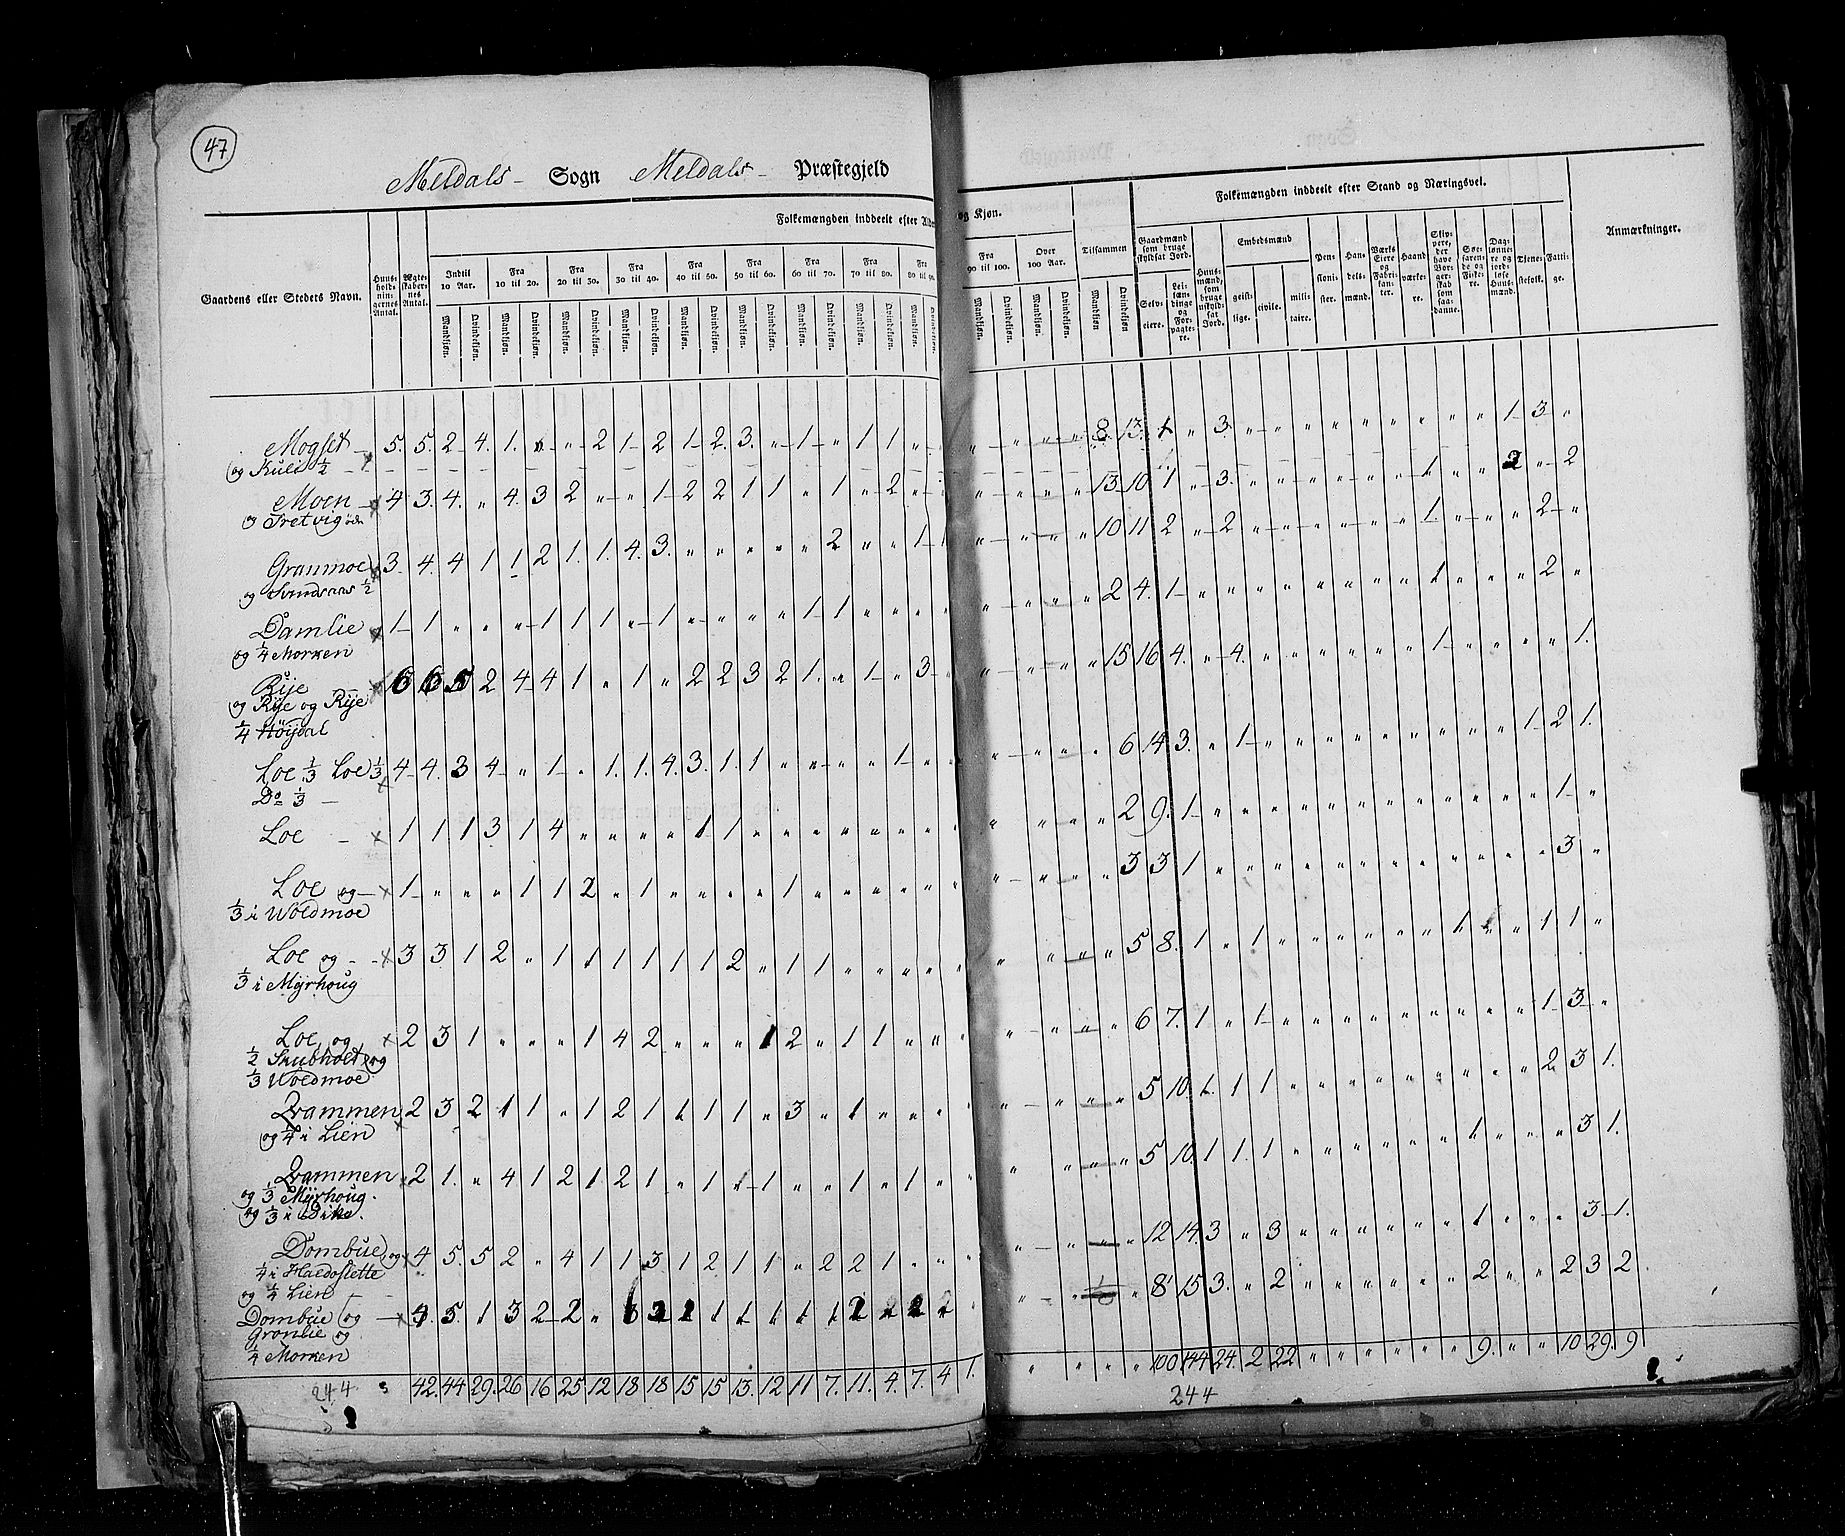 47
Meldals Sogn Meldals Præstegjeld
Gaardens eller Steders Navn.
Huusholdningernes Antal.
Ægteskabernes Antal.
Folkemængden inddeelt efter Alder og Kjøn.
Indtil 10 Aar. Fra 10 til 20. Fra 20 til 30. Fra 30 til 40. Fra 40 til 50. Fra 50 til 60. Fra 60 til 70. Fra 70 til 80. Fra 80 til 90. Fra 90 til 100. Over 100 Aar. Tilsammen
Mandkjøn. Qvindekjøn.
Folkemængden inddeelt efter Stand og Næringsvei.
Gaardmænd som bruge skyldsat Jord.
Selveiere.
Leilændinge og Forpagtere.
Huusmænd, som bruge uskyldsat Jord.
Embedsmænd
geistlige. civile. militaire.
Pensionister.
Handelsmænd.
Værks Eiere og Fabrikanter.
Haandværkere.
Skippere, der have Borgerskab som saadanne.
Søefarende og Fiskere.
Daglønnere og jordløse Huusmænd.
Tjenestefolk.
Fattige.
Anmærkninger.
Mogset 5. 5. 2 4 1. " " 2 1 2 1 2. 3. " 1 " 1 1 " 8. 13. 1 " 3. 1 3 "
og Kulis ½
Moen 4 3. 4. " 4. 3 2 " " 1 2 2 1 1 " 1 " 2 " 13 10 1 " 3. 1 2 " 2
Granmoe 3 4. 4 1 1 2 1. 1. 4. 3. " " " " " 2 " " 1 10 11 2 " 2 1 2 "
Damlie 1 1 " " " 1 1 1 " 1 " " " " 1 1 " 2 4. 1 1 2 "
og ¼ Morken
Rye 6 6 5 2 4 4 1 " 1 " 2 2 3 2 1. " 1 " 3 15 16 4. " 4. 1 1.
og Rye og Rye
¼ Höydal
Loe ⅓ Loe ⅓ 4 4. 3 4 " 1 " 1. 1. 4. 3. 1. 1 " " " " 1 6 14 3. " 1 1. 2 1.
Do ⅓
Loe 1 1 1 3 1 4 " " " " 1 1 " 2 9. 1 1 "
Loe og 1 " " " 1 1 2 " 1 " " " " 1 " 3 3 1 3 "
⅓ i Woldmoe
Loe og 3 3 1 2 " 1 1 1 1 1 1 2 " 1 1 " 5 8. 1 " 1 1 1 1 "
⅓ i Myrhoug
Loe og 2 3 1 " " " 1 4 2 " " " 1 2 " 1 1 " 6 7. 1 " 1 1 3 "
½ Skubholt og
⅓ Woldmoe
Qvammen 2 3 2 1 1 " 1 2 1 1 1 1 " 3 " 1 " 5 10. 1. 1 1 2 3 1.
og ¼ i Lien
Qvammen 2 1. " 4 1 2 1 2 1 " 1 1 1 " " 1 " 1 " 5 10. 1 1. 1 1 3 1.
og ⅓ Myrhoug.
Dombue og 4 5. 5 2 " 4 1 1 3 1 2 1 1 " 2 2 1 " 12 14. 3 " 3 1 3 1.
og ¼ Lien
Dombue og 4. 5. 1 3 2 2 " 8 15 3. " 2 2 " " 2 3 2
Grönlie og
¼ Morken
244 42. 44 29. 26 16 25 12 18 18 15 15 13. 12 11 7. 11. 4. 7. 4 1. 100 144 24. 2 22 9. " " 10 29. 9
244